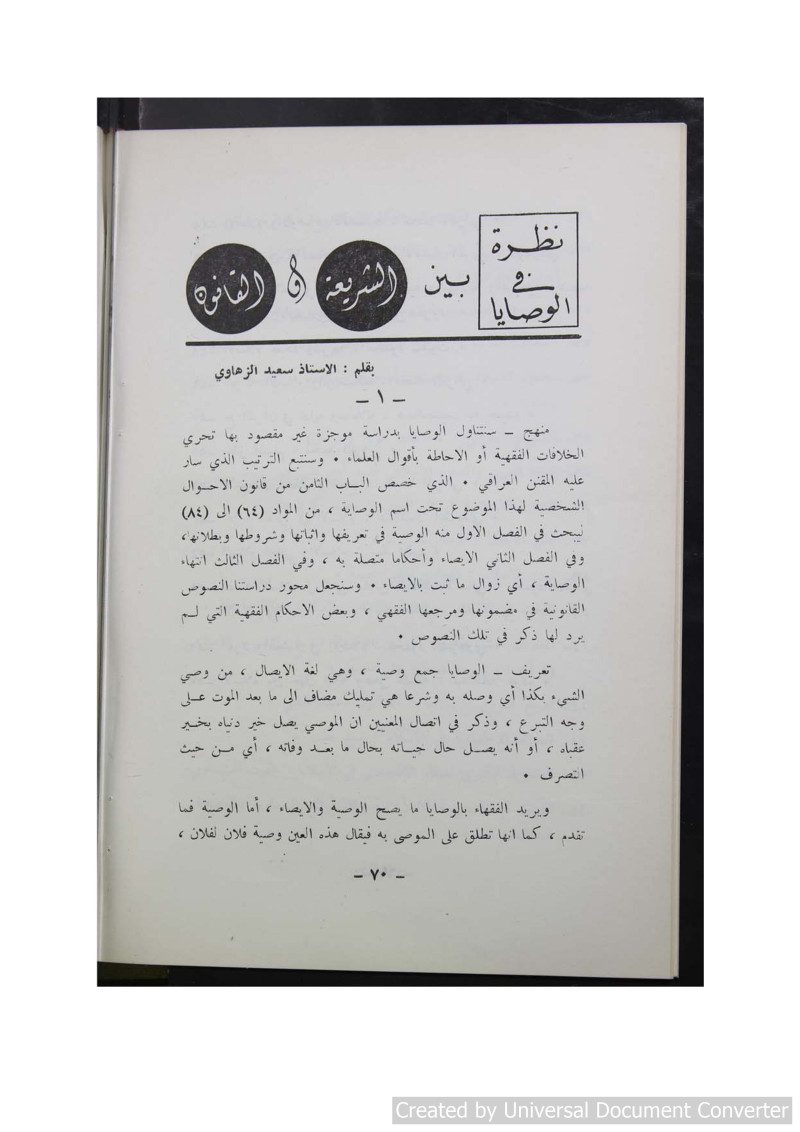 نظرة
في
الوصايا
بين الشريعة و القانون
بقلم : الاستاذ سعيد الزهاوي
– ١ –
منهج – سنتناول الوصايا بدراسة موجزة غير مقصود بها تحري
الخلافات الفقهية أو الاحاطة بأقوال العلماء • وسنتبع الترتيب الذي سار
عليه المقنن العراقي • الذي خصص الباب الثامن من قانون الاحوال
الشخصية لهذا الموضوع تحت اسم الوصاية ، من المواد (٦٤) الى (٨٤)
ليبحث في الفصل الاول منه الوصية في تعريفها واثباتها وشروطها وبطلانها،
وفي الفصل الثاني الايصاء وأحكاما متصلة به ، وفي الفصل الثالث انتهاء
الوصاية ، أي زوال ما ثبت بالايصاء • وسنجعل محور دراستنا النصوص
القانونية في مضمونها ومرجعها الفقهي ، وبعض الاحكام الفقهية التي لم
يرد لها ذكر في تلك النصوص •
تعريف – الوصايا جمع وصية ، وهي لغة الايصال ، من وصي
الشيء بكذا أي وصله به وشرعا هي تمليك مضاف الى ما بعد الموت على
وجه التبرع ، وذكر في اتصال المعنيين ان الموصي يصل خير دنياه بخير
عقباه ، أو أنه يصل حال حياته بحال ما بعد وفاته ، أي من حيث
التصرف •
ويريد الفقهاء بالوصايا ما يصح الوصية والايصاء ، أما الوصية فما
تقدم ، كما انها تطلق على الموصى به فيقال هذه العين وصية فلان لفلان ،
– ٧٠ –
Created by Universal Document Converter